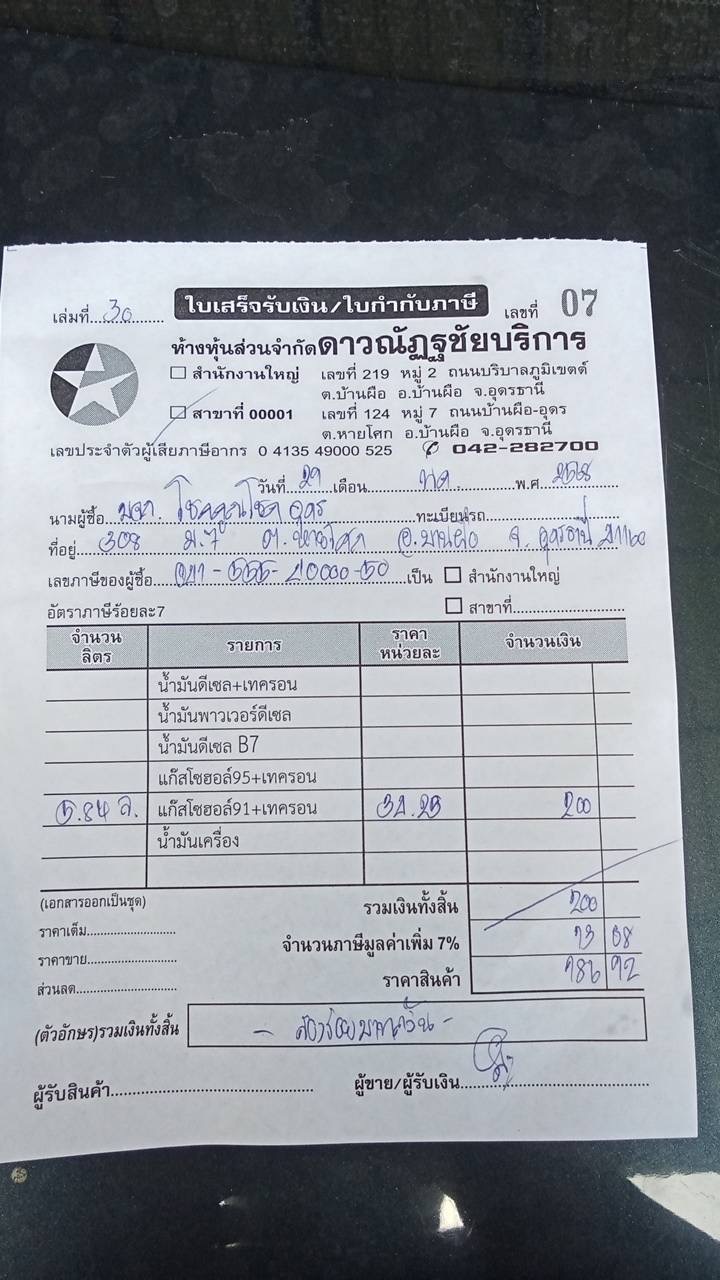 เล่มที่ 30 ใบเสร็จรับเงิน/ใบกำกับภาษี เลขที่ 07
ห้างหุ้นส่วนจำกัดดาวณัฏฐชัยบริการ
สำนักงานใหญ่ เลขที่ 219 หมู่ 2 ถนนบริบาลภูมิเขตต์
ต.บ้านผือ อ.บ้านผือ จ.อุดรธานี
สาขาที่ 00001 เลขที่ 124 หมู่ 7 ถนนบ้านผือ-อุดร
ต.หายโศก อ.บ้านผือ จ.อุดรธานี
เลขประจำตัวผู้เสียภาษีอากร 0 4135 49000 525 042-282700
วันที่ 29 เดือน พ.ศ. 2568
นามผู้ซื้อ โชคคูณโชค อุดร ทะเบียนรถ
ที่อยู่ 308 ม.7 ต.หายโศก อ.บ้านผือ จ.อุดรธานี 41160
เลขภาษีของผู้ซื้อ เป็น สำนักงานใหญ่
อัตราภาษีร้อยละ7 สาขาที่
จำนวนลิตร รายการ ราคาหน่วยละ จำนวนเงิน
น้ำมันดีเซล+เทครอน
น้ำมันพาวเวอร์ดีเซล
น้ำมันดีเซล B7
แก๊สโซฮอล์95+เทครอน
5.84 ล. แก๊สโซฮอล์91+เทครอน 200
น้ำมันเครื่อง
(เอกสารออกเป็นชุด) รวมเงินทั้งสิ้น 200
ราคาเต็ม จำนวนภาษีมูลค่าเพิ่ม 7% 13 08
ราคาขาย ราคาสินค้า 186 92
ส่วนลด
(ตัวอักษร)รวมเงินทั้งสิ้น - สองร้อยบาทถ้วน -
ผู้รับสินค้า ผู้ขาย/ผู้รับเงิน